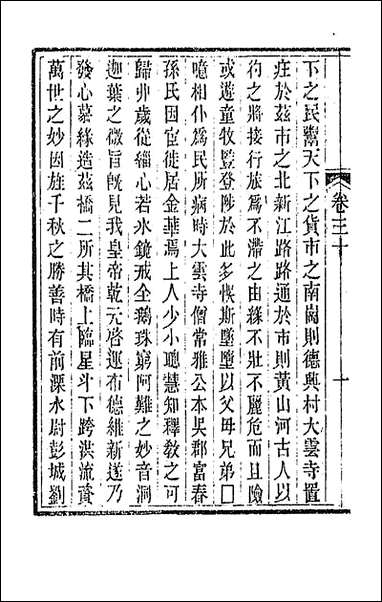 下之民鬻天下之貨市之南崗則德興村大雲寺置
莊於茲市之北新江路路通於市則黃山河古人以
彴之將接行旅爲不滯之由緣不壯不麗危而且險
或遊童牧豎登陟於此多惧斯墮墮以父毋兄弟□
噫相仆爲民所病時大雲寺僧常雅公本吳郡富春
孫氏因宦徙居金華焉上人少小聰慧知釋敎之可
歸丱歲從緇心若氷鏡戒全鵝珠窮阿難之妙音洞
迦葉之微旨旣見我皇帝乾天啓運布德維新遂乃
發心慕緣造茲橋二所其橋上臨星斗下跨洪流資
萬世之妙因旌千秋之勝善時有前溧水尉彭城劉
卷三十
十